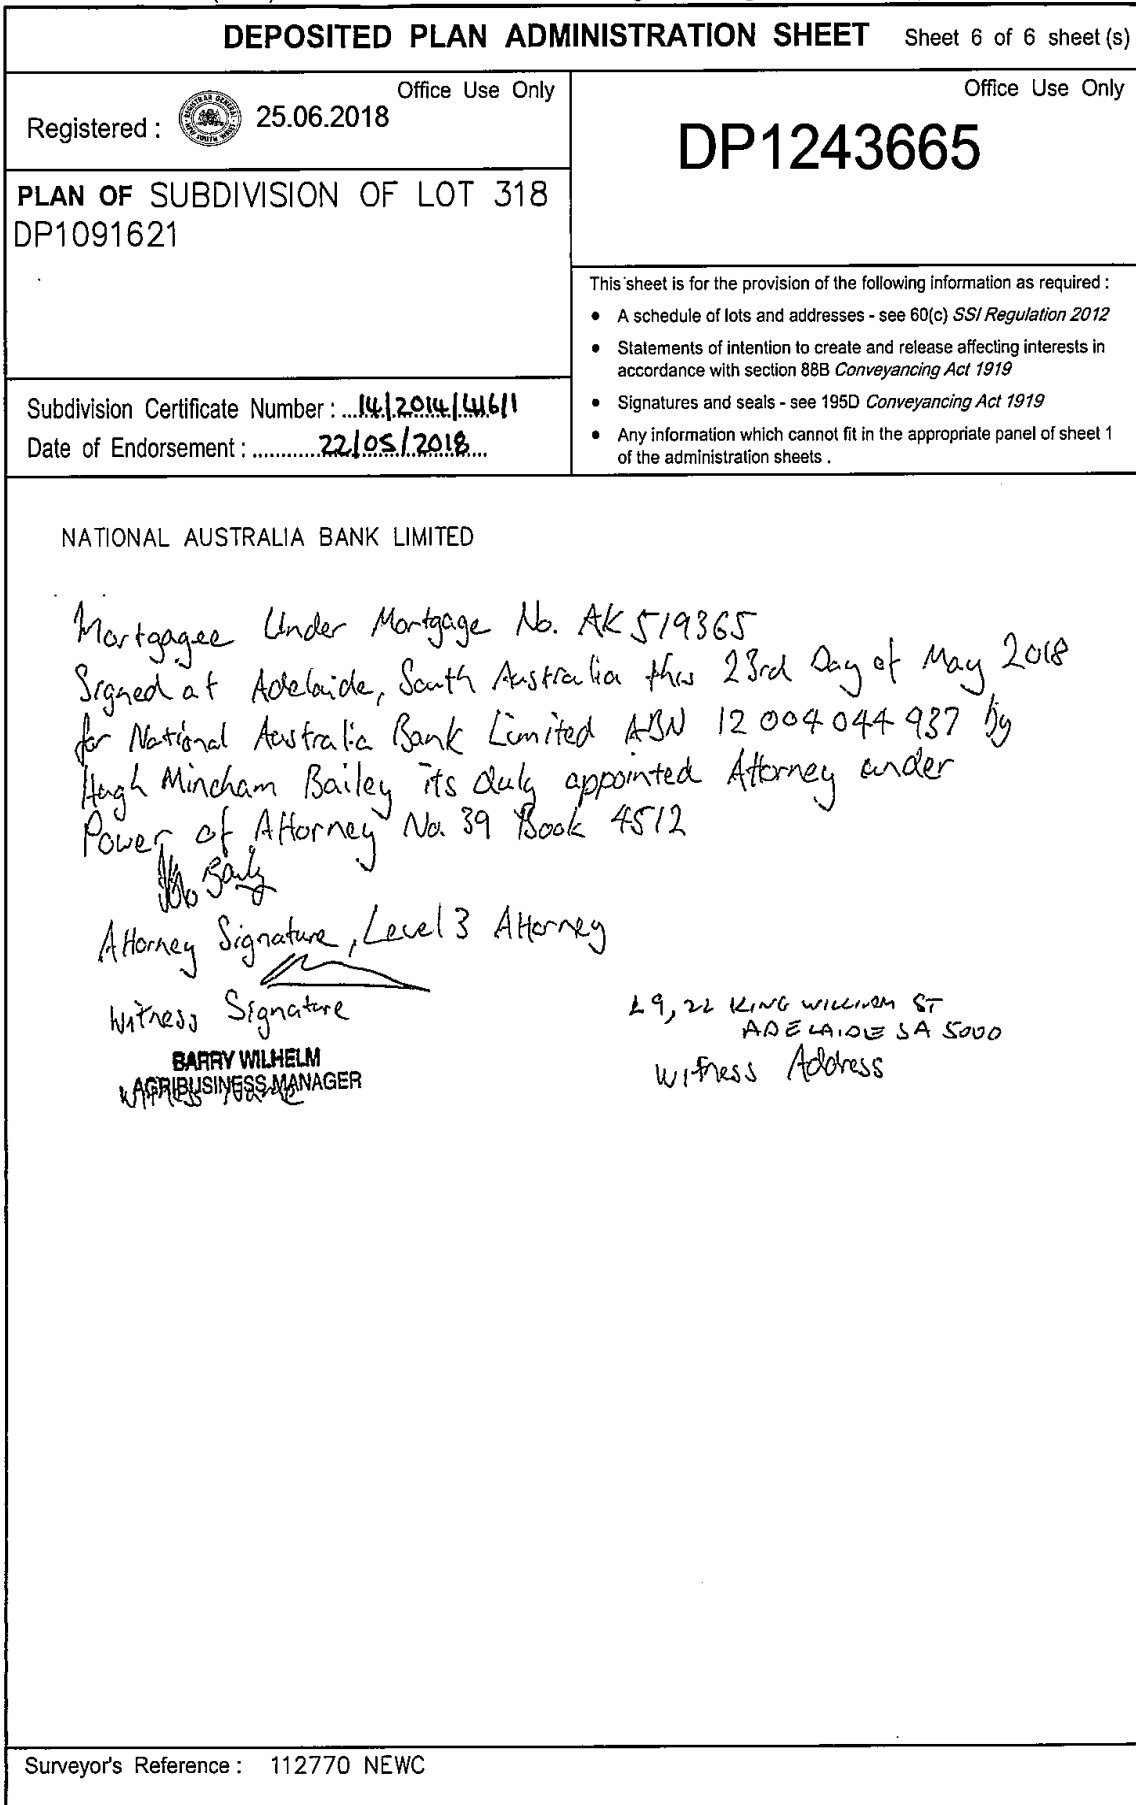 DEPOSITED PLAN ADMINISTRATION SHEET Sheet 6 of 6 sheet(s)
Office Use Only
Registered : 25.06.2018
Office Use Only
DP1243665
PLAN OF SUBDIVISION OF LOT 318
DP1091621
This sheet is for the provision of the following information as required :
• A schedule of lots and addresses - see 60(c) SSI Regulation 2012
• Statements of intention to create and release affecting interests in
accordance with section 88B Conveyancing Act 1919
• Signatures and seals - see 195D Conveyancing Act 1919
• Any information which cannot fit in the appropriate panel of sheet 1
of the administration sheets .
Subdivision Certificate Number : ...14/2014/416/1
Date of Endorsement : ............22/05/2018...
NATIONAL AUSTRALIA BANK LIMITED
Mortgagee Under Mortgage No. AK519365
Signed at Adelaide, South Australia this 23rd Day of May 2018
for National Australia Bank Limited ABN 12 004 044 937 by
Hugh Mincham Bailey its duly appointed Attorney under
Power of Attorney No. 39 Book 4512
Attorney Signature, Level 3 Attorney
Witness Signature
BARRY WILHELM
AGRIBUSINESS MANAGER
Witness Name
L9, 22 KING WILLIAM ST
ADELAIDE SA 5000
Witness Address
Surveyor's Reference : 112770 NEWC